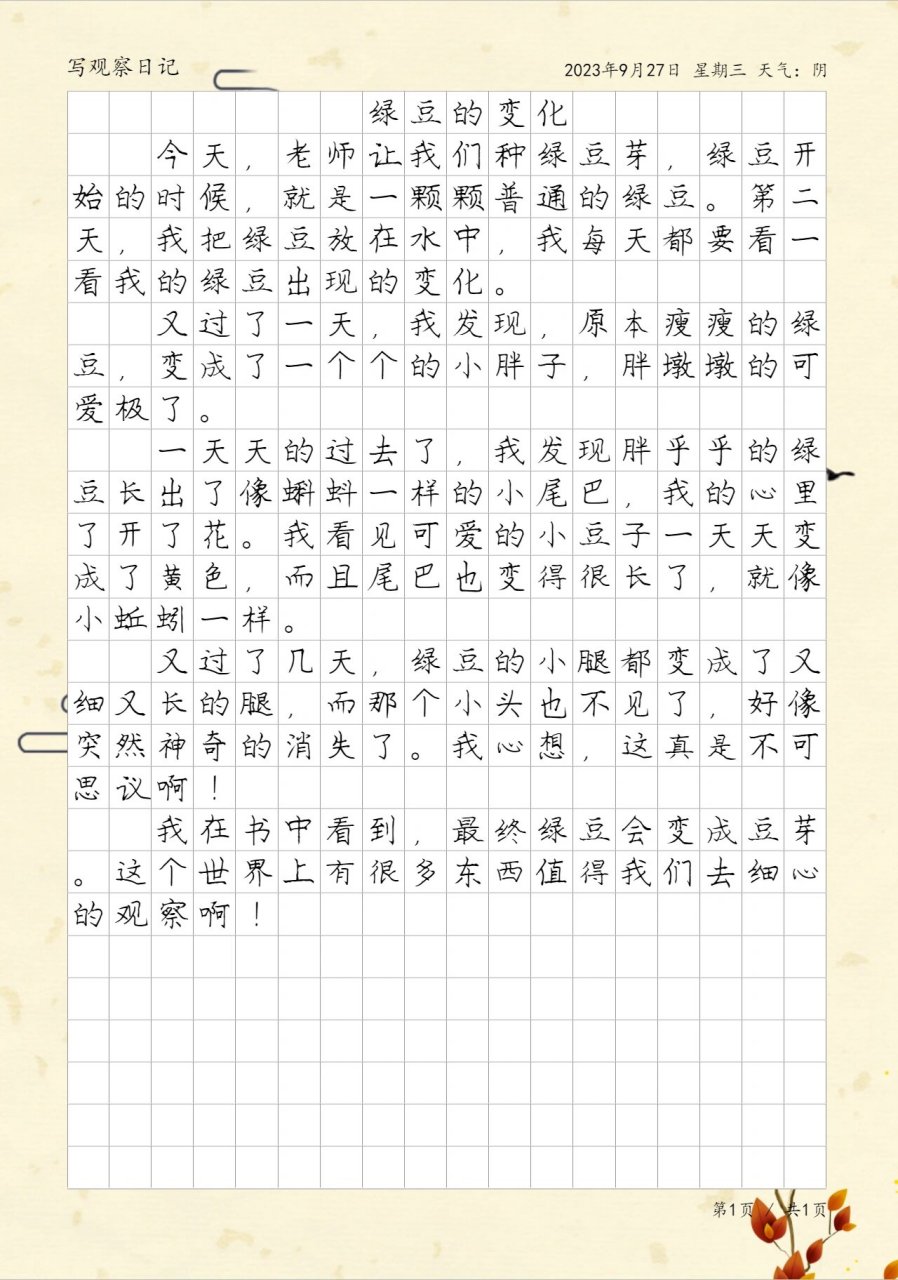 写观察日记
2023年9月27日 星期三 天气：阴
绿豆的变化
今天，老师让我们种绿豆芽，绿豆开
始的时候，就是一颗颗普通的绿豆。第二
天，我把绿豆放在水中，我每天都要看一
看我的绿豆出现的变化。
又过了一天，我发现，原本瘦瘦的绿
豆，变成了一个个的小胖子，胖墩墩的可
爱极了。
一天天的过去了，我发现胖乎乎的绿
豆长出了像蝌蚪一样的小尾巴，我的心里
了开了花。我看见可爱的小豆子一天天变
成了黄色，而且尾巴也变得很长了，就像
小蚯蚓一样。
又过了几天，绿豆的小腿都变成了又
细又长的腿，而那个小头也不见了，好像
突然神奇的消失了。我心想，这真是不可
思议啊！
我在书中看到，最终绿豆会变成豆芽
。这个世界上有很多东西值得我们去细心
的观察啊！
第1页 / 共1页